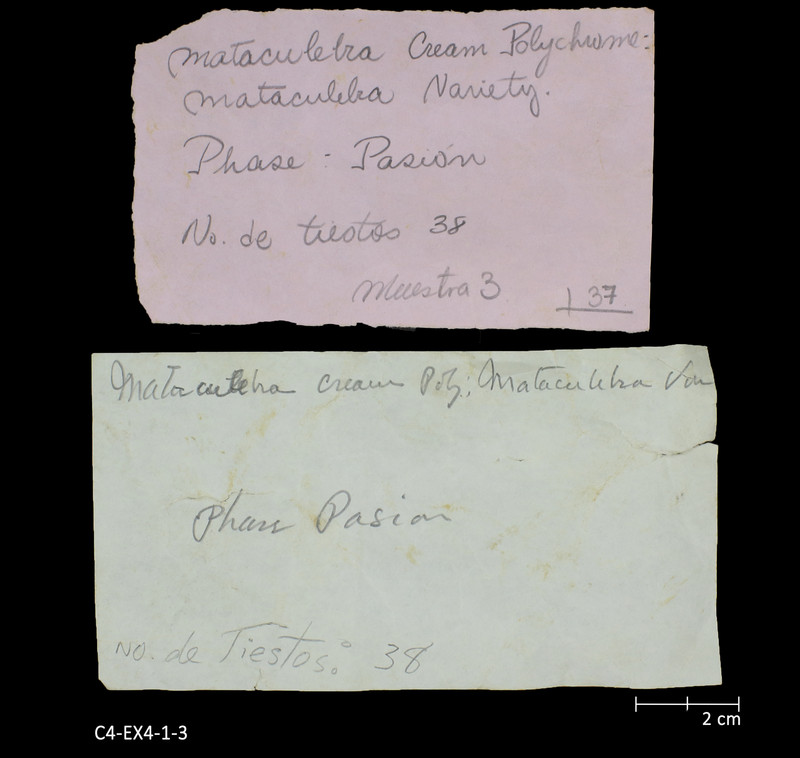 Mataculebra Cream Polychrome:
Mataculebra Variety.
Phase : Pasión
No. de tiestos 38
Muestra 3
37
Mataculebra Cream Poly; Mataculebra Var
Phase Pasion
No. de Tiestos: 38
2 cm
C4-EX4-1-3